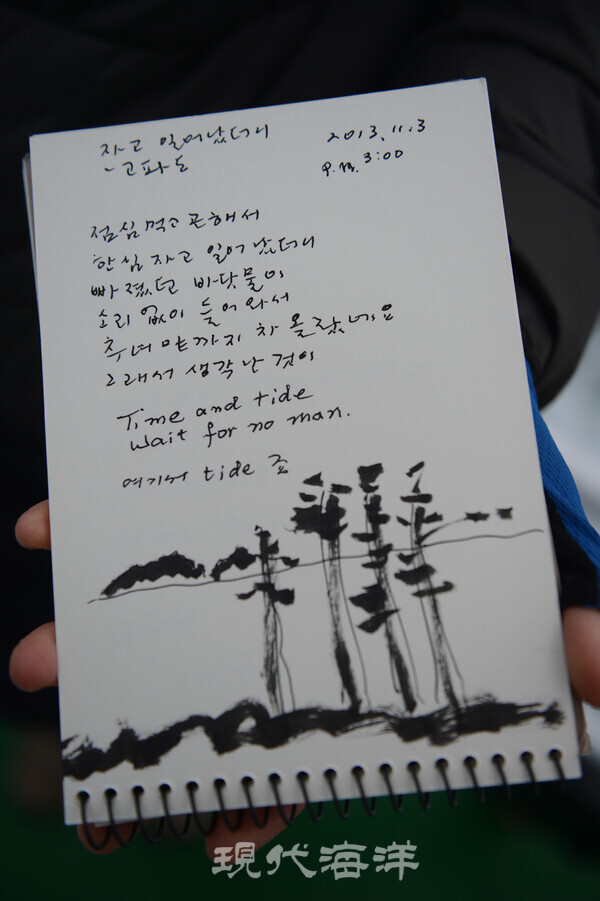 자고 일어났더니
- 고파도
2013. 11. 3
P.M. 3:00
점심먹고 곤해서
한심 자고 일어 났더니
빠졌던 바닷물이
소리 없이 들어와서
추녀 밑까지 차 올랐네요
그래서 생각난 것이
Time and tide
wait for no man.
여기서 tide 죠
現代海洋